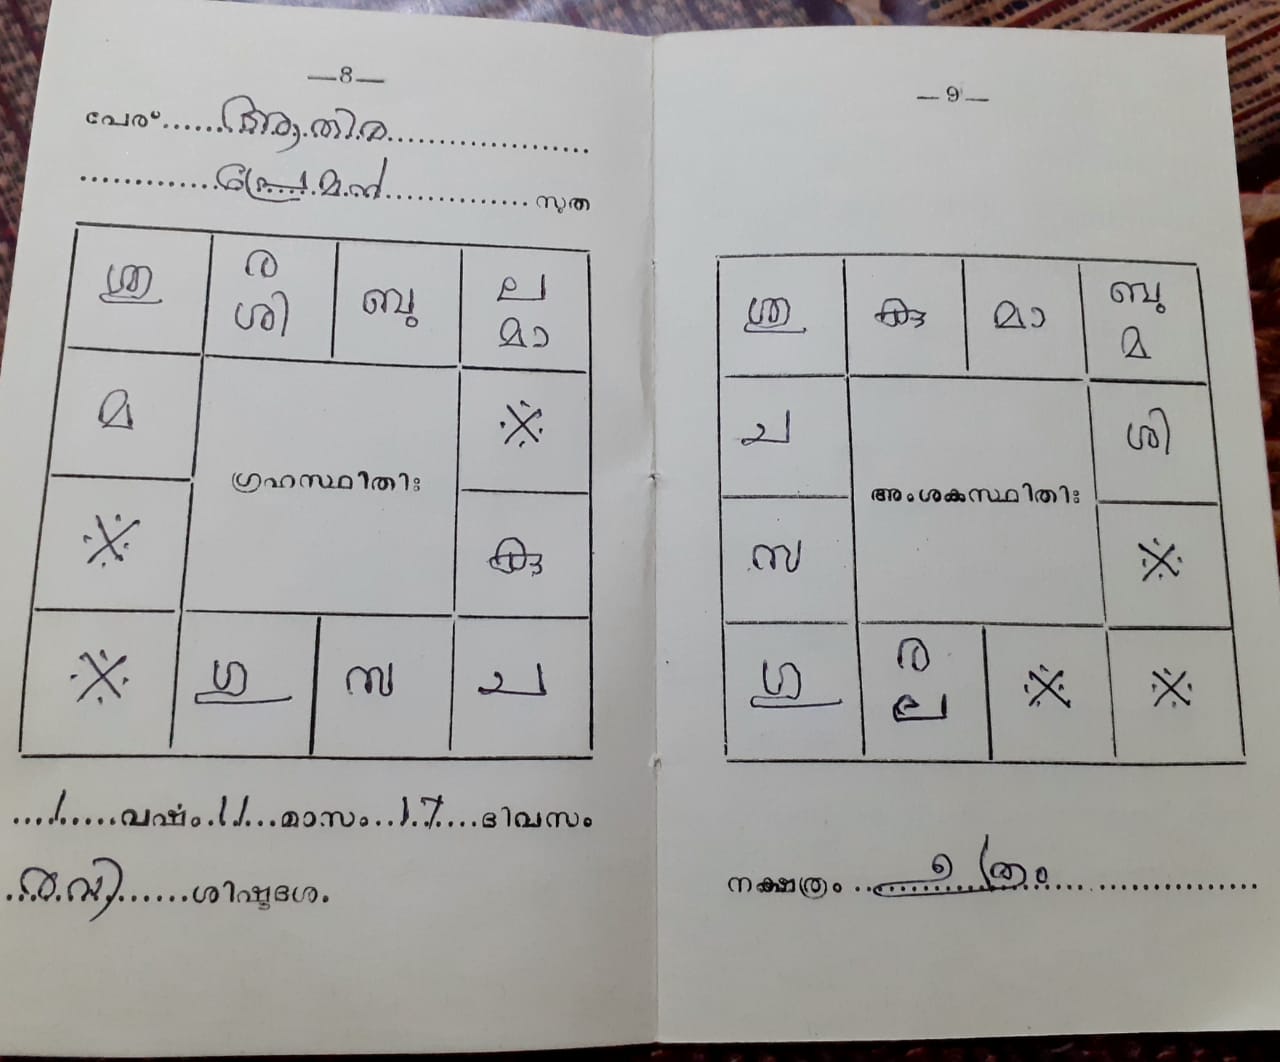 —8—
പേര് ആതിര
പ്രേമൻ സുത
ശു ര ബു ല
ശി മാ
മ ※
ഗ്രഹസ്ഥിതിഃ
※
※ ഗു സ ച
1 വഷം 11 മാസം 17 ദിവസം
രവി ശിഷ്ടദശേ.
—9—
ശു മാ ബു
മ
ച ശി
അംശകസ്ഥിതിഃ
സ ※
ഗു ര ※ ※
ല
നക്ഷത്രം ഉത്രം